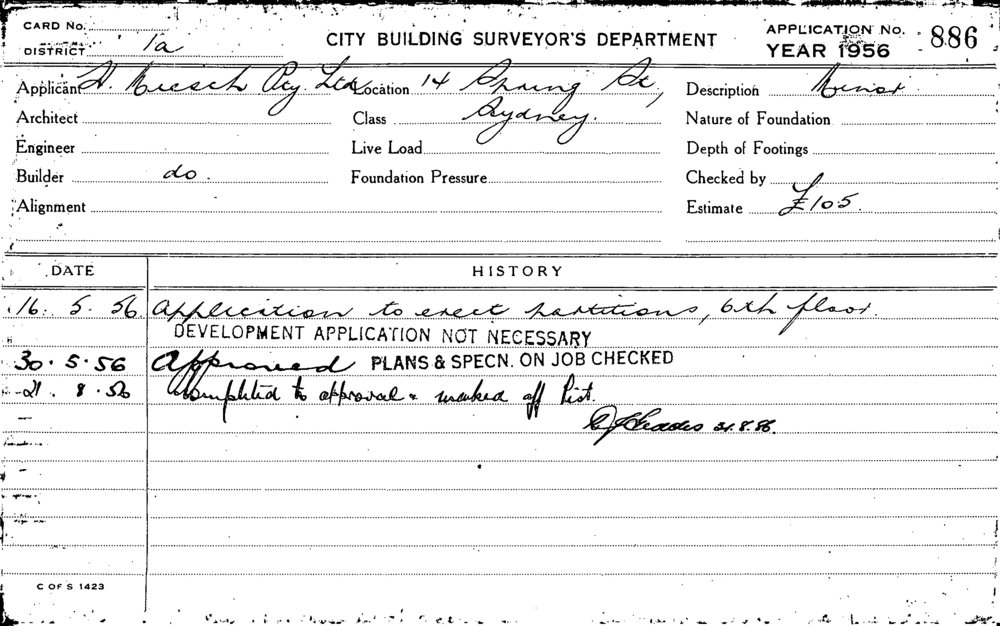 CARD No.
DISTRICT 1a
CITY BUILDING SURVEYOR'S DEPARTMENT
APPLICATION No. 886
YEAR 1956
Applicant H. Kiesch Pty. Ltd. Location 14 Spring St., Description Minor
Architect Class Sydney. Nature of Foundation
Engineer Live Load Depth of Footings
Builder do. Foundation Pressure Checked by
Alignment Estimate £105.
DATE HISTORY
16. 5. 56 Application to erect partitions, 6th floor.
DEVELOPMENT APPLICATION NOT NECESSARY
30.5.56 Approved PLANS & SPECN. ON JOB CHECKED
21. 8. 56 Completed to approval & marked off list.
21.8.56.
C OF S 1423